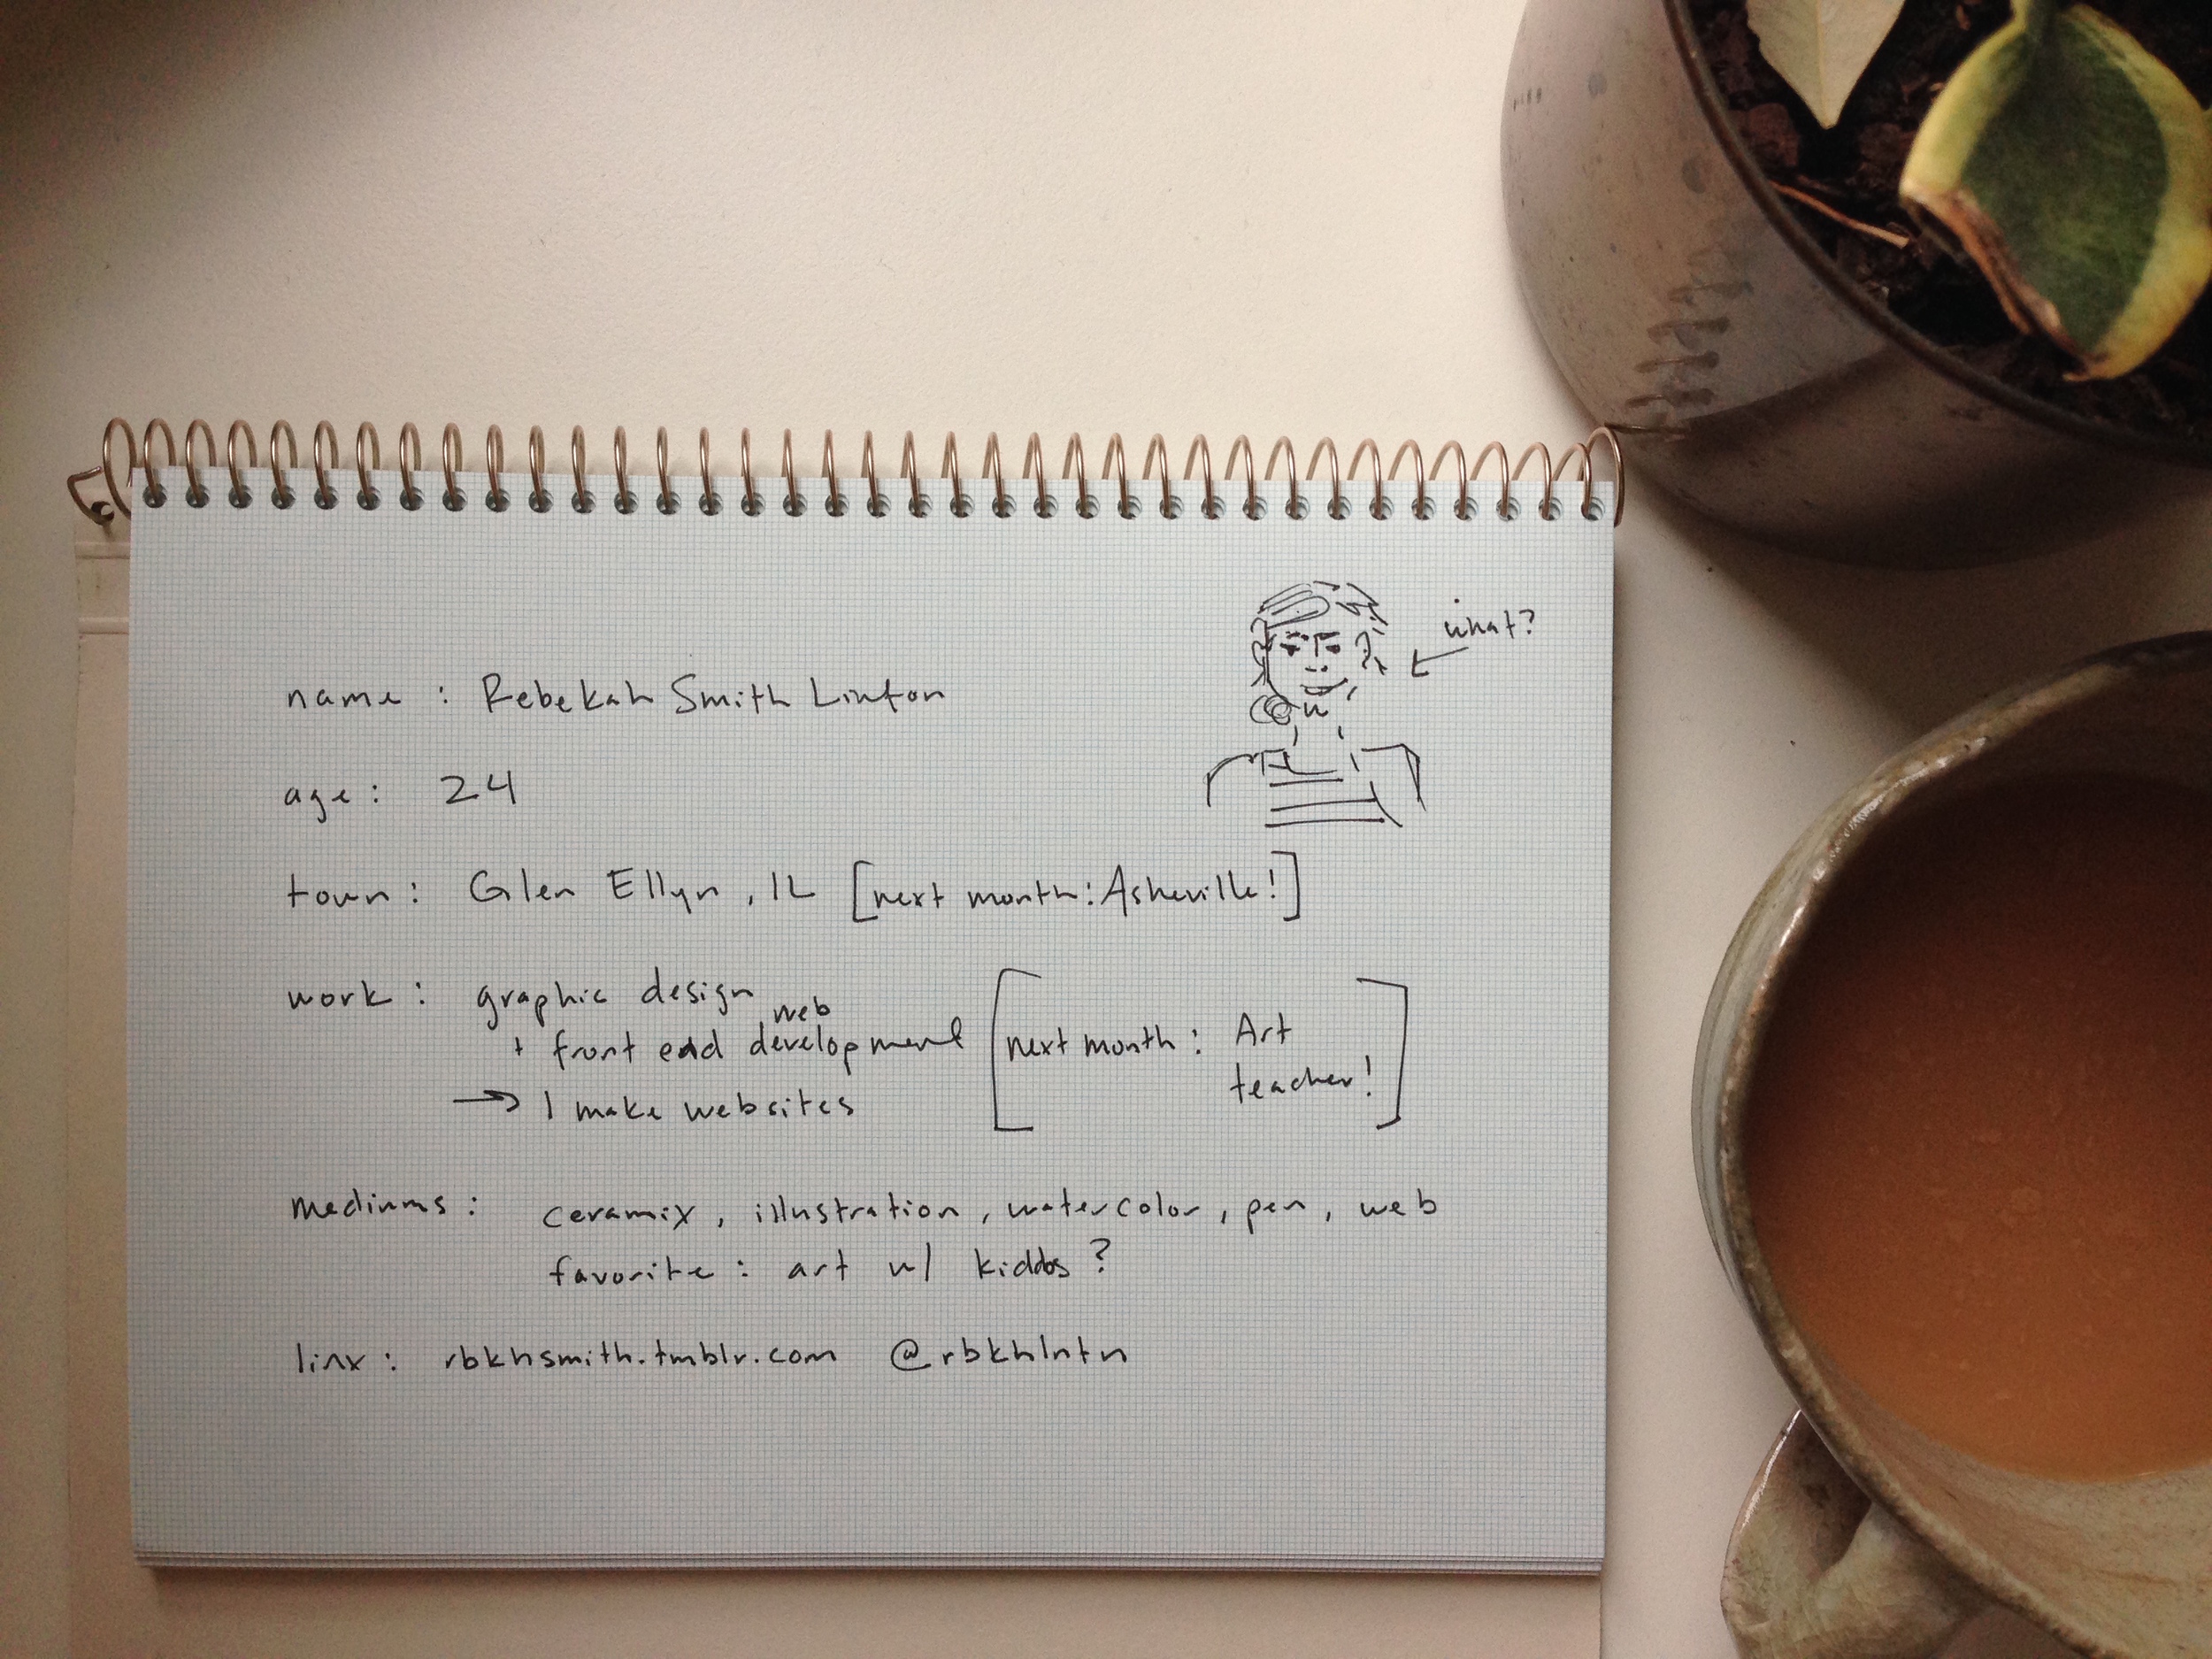 what?
name : Rebekah Smith Linton
age : 24
town : Glen Ellyn, IL [next month: Asheville!]
work : graphic design
+ front end web development
→ I make websites
[next month : Art
teacher!]
mediums : ceramix, illustration, watercolor, pen, web
favorite : art w/ kiddos?
linx : rbkhsmith.tmblr.com @rbkhlntn